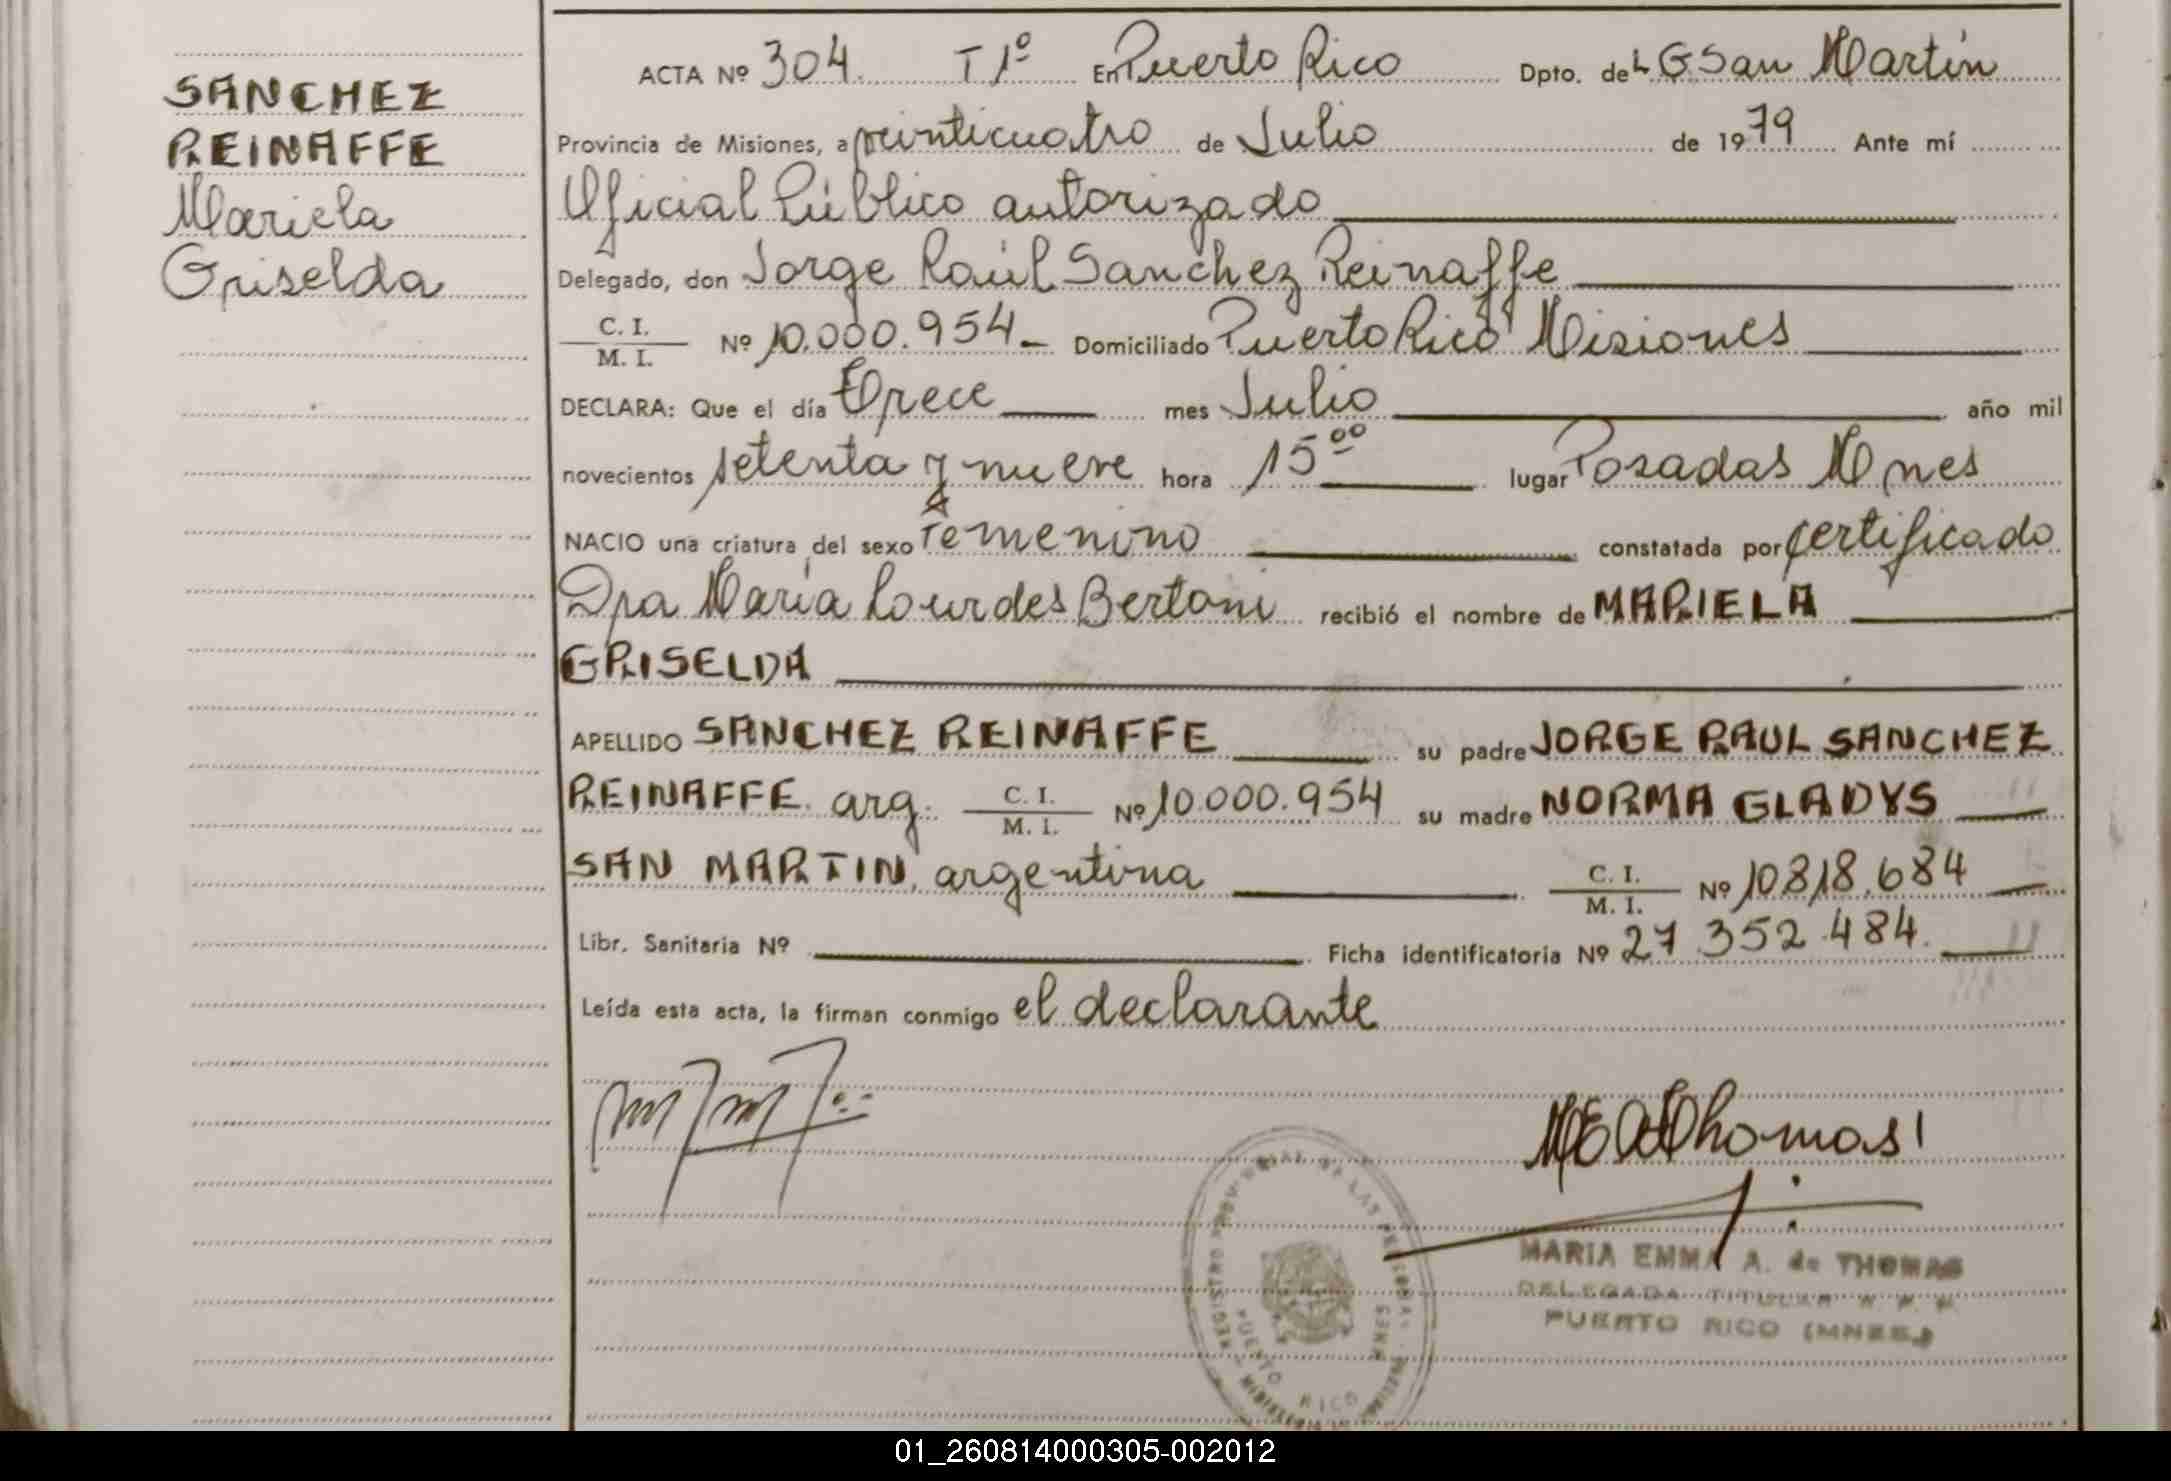 SANCHEZ
REINAFFE
Mariela
Griselda
ACTA Nº 304. T 1º En Puerto Rico Dpto. de L G San Martín
Provincia de Misiones, a veinticuatro de Julio de 1979 Ante mí
Oficial Público autorizado
Delegado, don Jorge Raúl Sanchez Reinaffe
C. I.
M. I. Nº 10.000.954 Domiciliado Puerto Rico Misiones
DECLARA: Que el día Trece mes Julio año mil
novecientos setenta y nueve hora 15 00 lugar Posadas Mnes
NACIO una criatura del sexo Femenino constatada por certificado
Dra María Lourdes Bertoni recibió el nombre de MARIELA
GRISELDA
APELLIDO SANCHEZ REINAFFE su padre JORGE RAUL SANCHEZ
REINAFFE. arg. C. I. M. I. Nº 10.000.954 su madre NORMA GLADYS
SAN MARTIN, argentina C. I. M. I. Nº 10.818.684
Libr. Sanitaria Nº Ficha identificatoria Nº 27.352.484.
Leída esta acta, la firman conmigo el declarante
M E A d Thomas
MARIA EMMA A. de THOMAS
DELEGADA TITULAR R. P. P.
PUERTO RICO (MNES.)
REGISTRO PROVINCIAL DE LAS PERSONAS
PUERTO RICO MNES
01_260814000305-002012